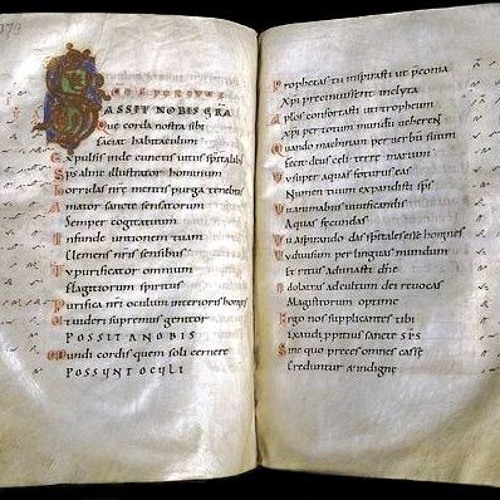 ASSIT NOBIS GRA
Que corda nostra sibi
faciat habitaculum
Expulsis inde cunctis uitiis spitalib;
Sps alme illustrator hominum
Horridas nre mentis purga tenebras
Amator sancte sensatorum
Semper cogitatuum
Infunde unctionem tuam
Clemens nris sensibus
Tu purificator omnium
Flagitiorum spiritus
Purifica nri oculum interioris homis
Ut uideri supremus genitor
POSSIT A NOBIS
Mundi cordis quem soli cernere
POSSUNT OCULI
Prophetas tu inspirasti ut pconia
Xpi precinuissent inclyta
Aplos confortasti uti tropheum
Xpi per totum mundu ueherent
Quando machinam per uerbu suum
fecit deus celi terre marium
Tu super aquas foturus eas
Numen tuum expandisti sps
Tu animabus uiuificandis
Aquas fecundas
Tu aspirando das spitales esse homines
Tu diuisum per linguas mundum
Et ritus adunasti dne
Idolatras ad cultum dei reuocas
Magistrorum optime
Ergo nos supplicantes tibi
Exaudi ppitius sancte SPS
Sine quo preces omnes casse
Creduntur & indigne